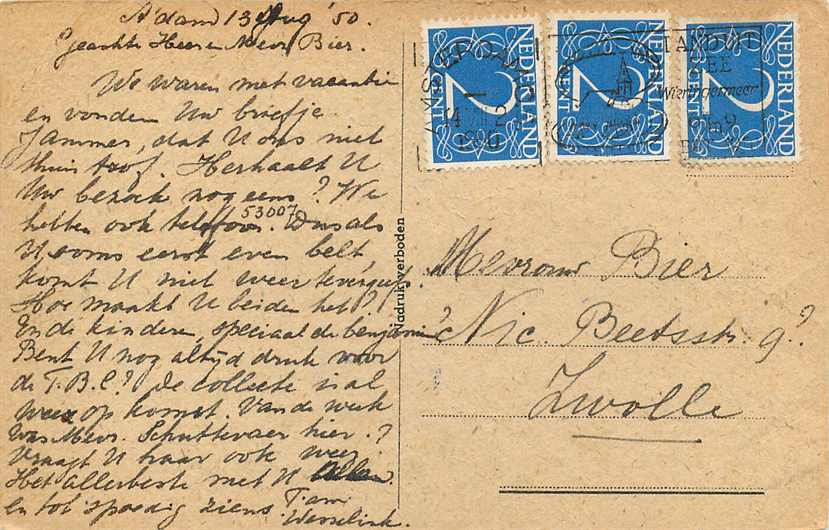 A'dam 13 Aug '50.
Geachte Heer en Mevr. Bier.
We waren met vacantie
en vonden Uw briefje.
Jammer, dat U ons niet
thuis trof. Herhaalt U
Uw bezoek nog eens? We
hebben ook telefoon. 53007 Dus als
U soms eerst even belt,
komt U niet weer tevergeefs.
Hoe maakt U beiden het?
En de kinderen, speciaal de benjamin?
Bent U nog altijd druk voor
de T.B.C.? De collecte is al
weer op komst. Van de week
was Mevr. Schuttevaer hier.
Vraagt U haar ook weer?
Het allerbeste met U allen
en tot spoedig ziens. Fam
Wesselink.
Nadruk verboden
NEDERLAND
2
CENT
NEDERLAND
2
CENT
NEDERLAND
2
CENT
AMSTERDAM
Wieringermeer
Mevrouw Bier
Nic. Beetsstr. 9?
Zwolle